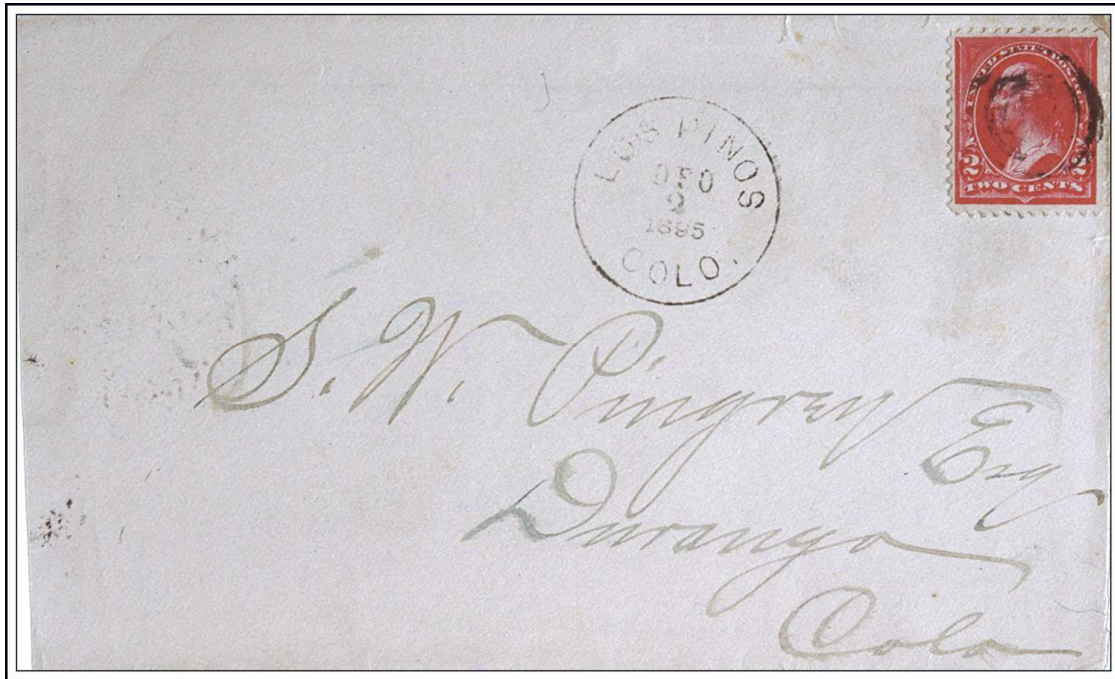 UNITED STATES POSTAGE
2 2
TWO CENTS
LOS PINOS
DEC
2
1895
COLO.
S. W. Pingrey
Esq
Durango
Colo